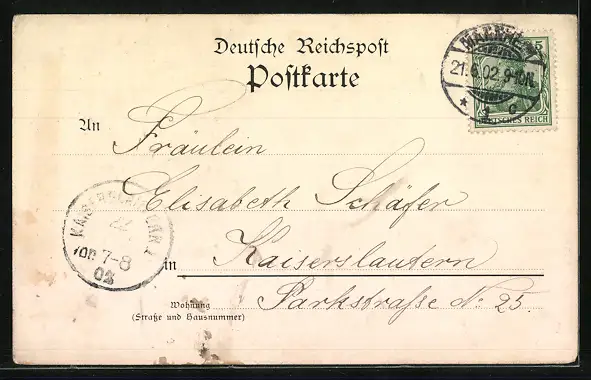 Deutsche Reichspost
Postkarte
MANNHEIM
21.6.02.9-10N.
* 1 c
5
DEUTSCHES REICH
An
Fräulein
Elisabeth Schäfer
in Kaiserslautern
Parkstraße No. 25.
Wohnung
(Straße und Hausnummer)
KAISERSLAUTERN
22
Vor 7-8
02